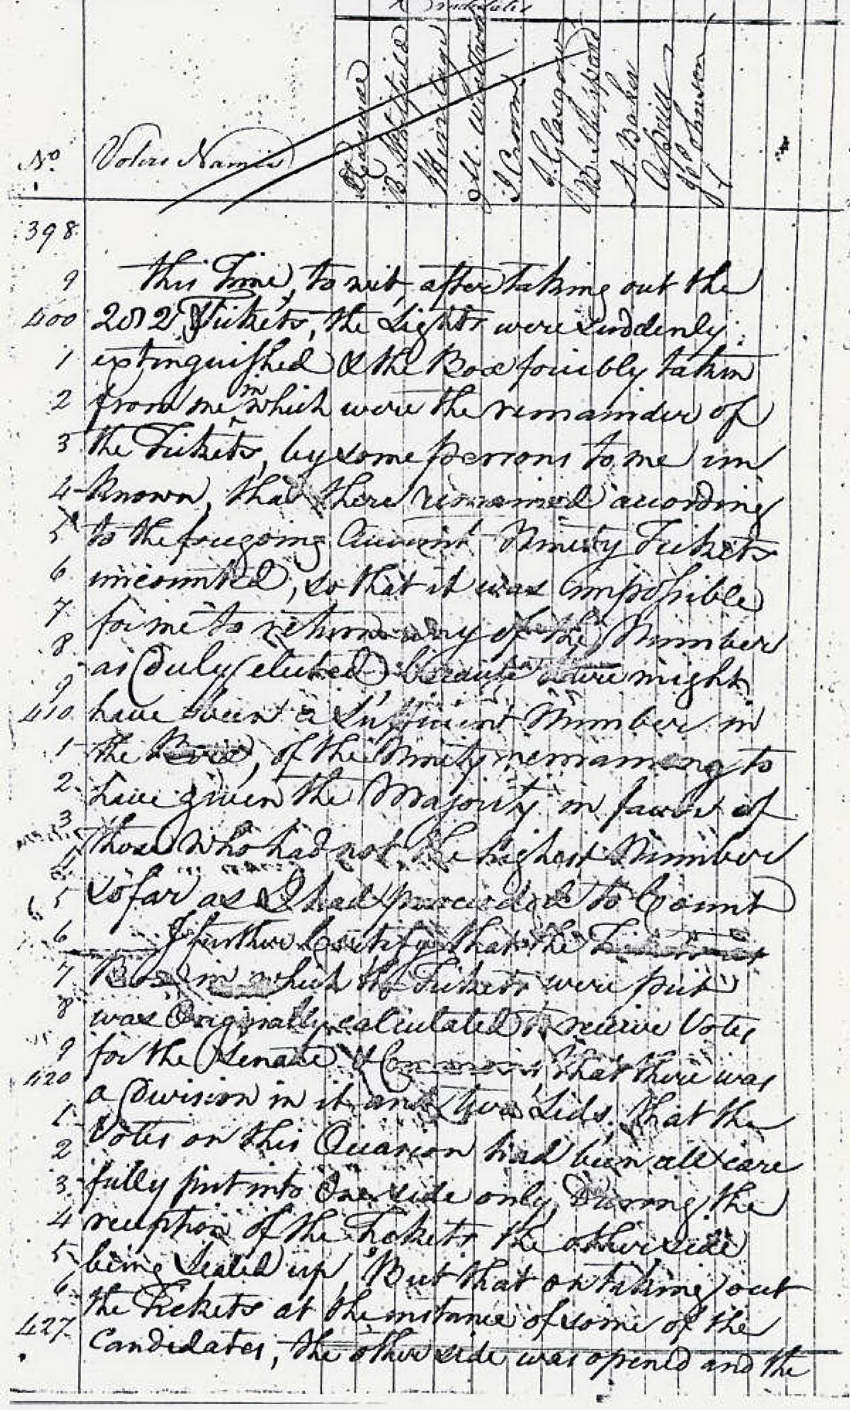 Candidates
No. Voters Names
J Glasgow
B. Sheppard
A. Baker
J Johnson
398
9 this Time, to wit, after taking out the
400 282 Tickets, the Lights were suddenly
1 extinguished & the Box forcibly taken
2 from me in which were the remainder of
3 the Tickets, by some persons to me un
4 known, that there remained according
5 to the foregoing Account Ninety Tickets
6 uncounted, so that it was impossible
7 for me to return any of the Number
8 as duly elected, because there might
9
410 have been a Sufficient Number in
1 the Box, of the Ninety remaining to
2 have given the Majority in favor of
3
4 those who had not the highest Number
5 so far as I had proceeded to Count
6 I further Certify that the
7 Box in which the Tickets were put
8 was Originally calculated to receive Votes
9 for the Senate & Commons, that there was
420 a Division in it and two Lids, that the
1 Votes on this Occasion had been all care
2 fully put into One side only, During the
3 reception of the Tickets the other side
4 being Sealed up, But that on taking out
5 the Tickets at the instance of some of the
6
427 Candidates, the other side was opened and the